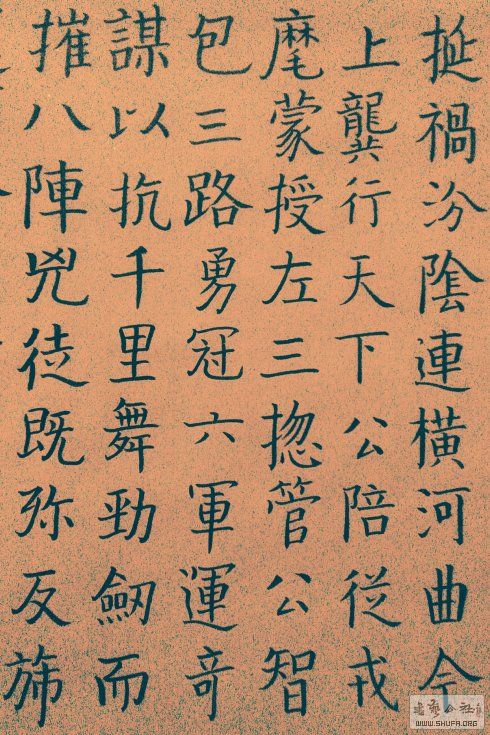 挻禍汾陰連横河曲今
上龔行天下公陪從戎
麾蒙授左三揔管公智
包三路勇冠六軍運奇
謀以抗千里舞勁劒而
摧八陣兇徒既弥反斾
書法公社
WWW.SHUFA.ORG